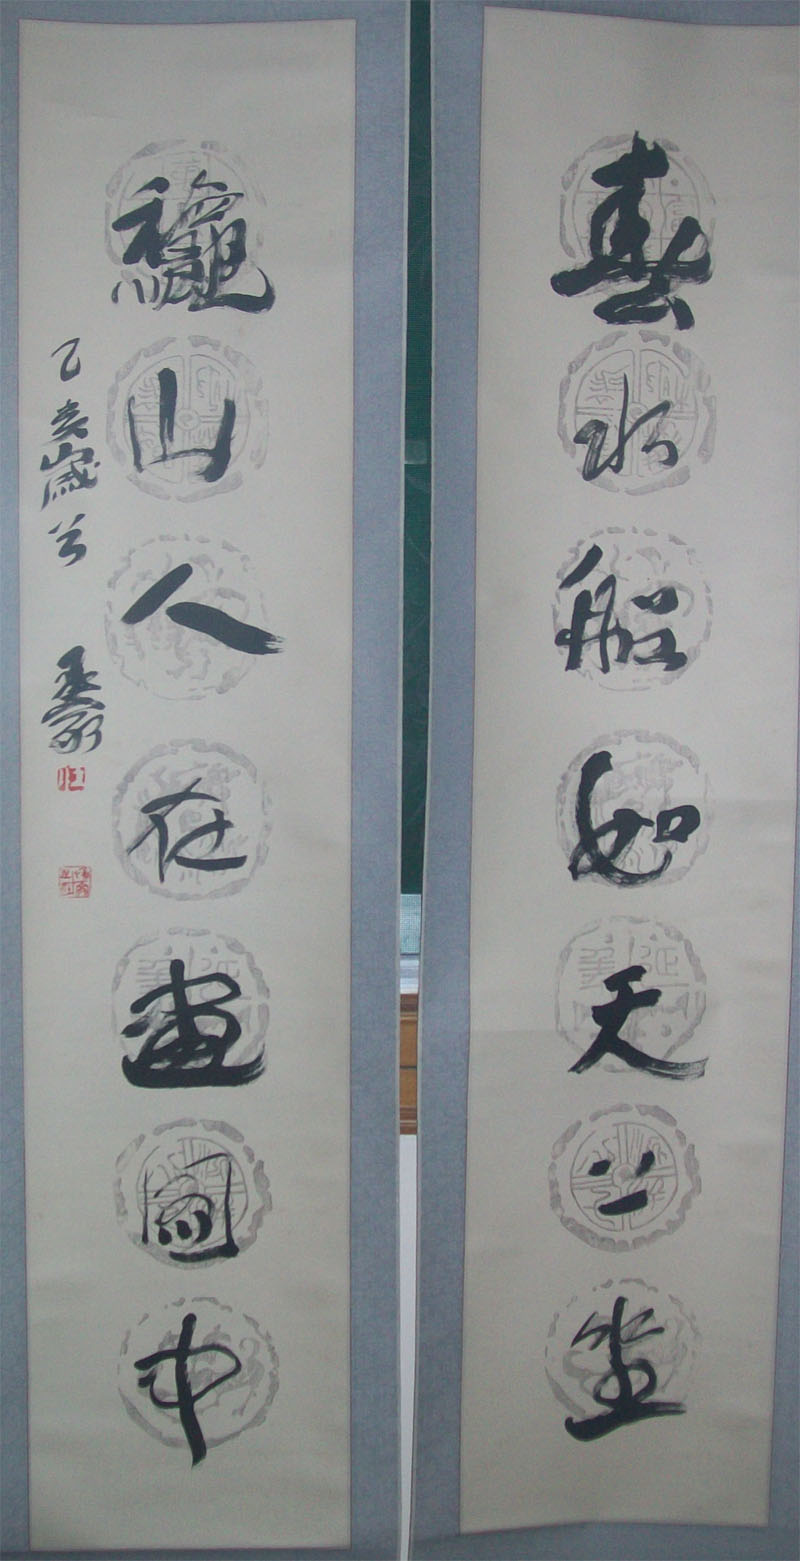 春水船如天上坐
龝山人在畫圖中
乙亥歲